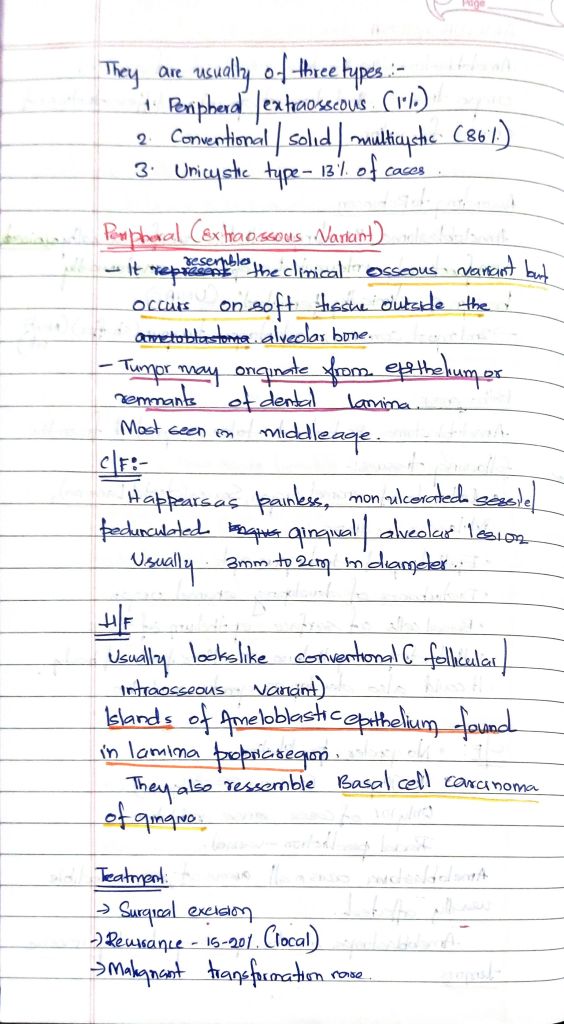 Page
They are usually of three types :-
1. Peripheral / extraosseous (1%)
2. Conventional / solid / multicystic (86%)
3. Unicystic type - 13% of cases.
Peripheral (extraossous Variant)
- It represents resembles the clinical osseous variant but
occurs on soft tissue outside the
ameloblastoma alveolar bone.
- Tumor may originate from epithelium or
remnants of dental lamina.
Most seen in middleage.
C/F:-
It appears as painless, non ulcerated sessile/
pedunculated gingival / alveolar lesion
Usually 3mm to 2cm in diameter.
H/F
Usually lookslike conventional ( follicular /
intraosseous variant)
Islands of Ameloblastic epithelium found
in lamina propria region.
They also ressemble Basal cell carcinoma
of gingiva
Teatment:
→ Surgical excision
→ Reurrance - 15-20% (local)
→ Malignant transformation rare.